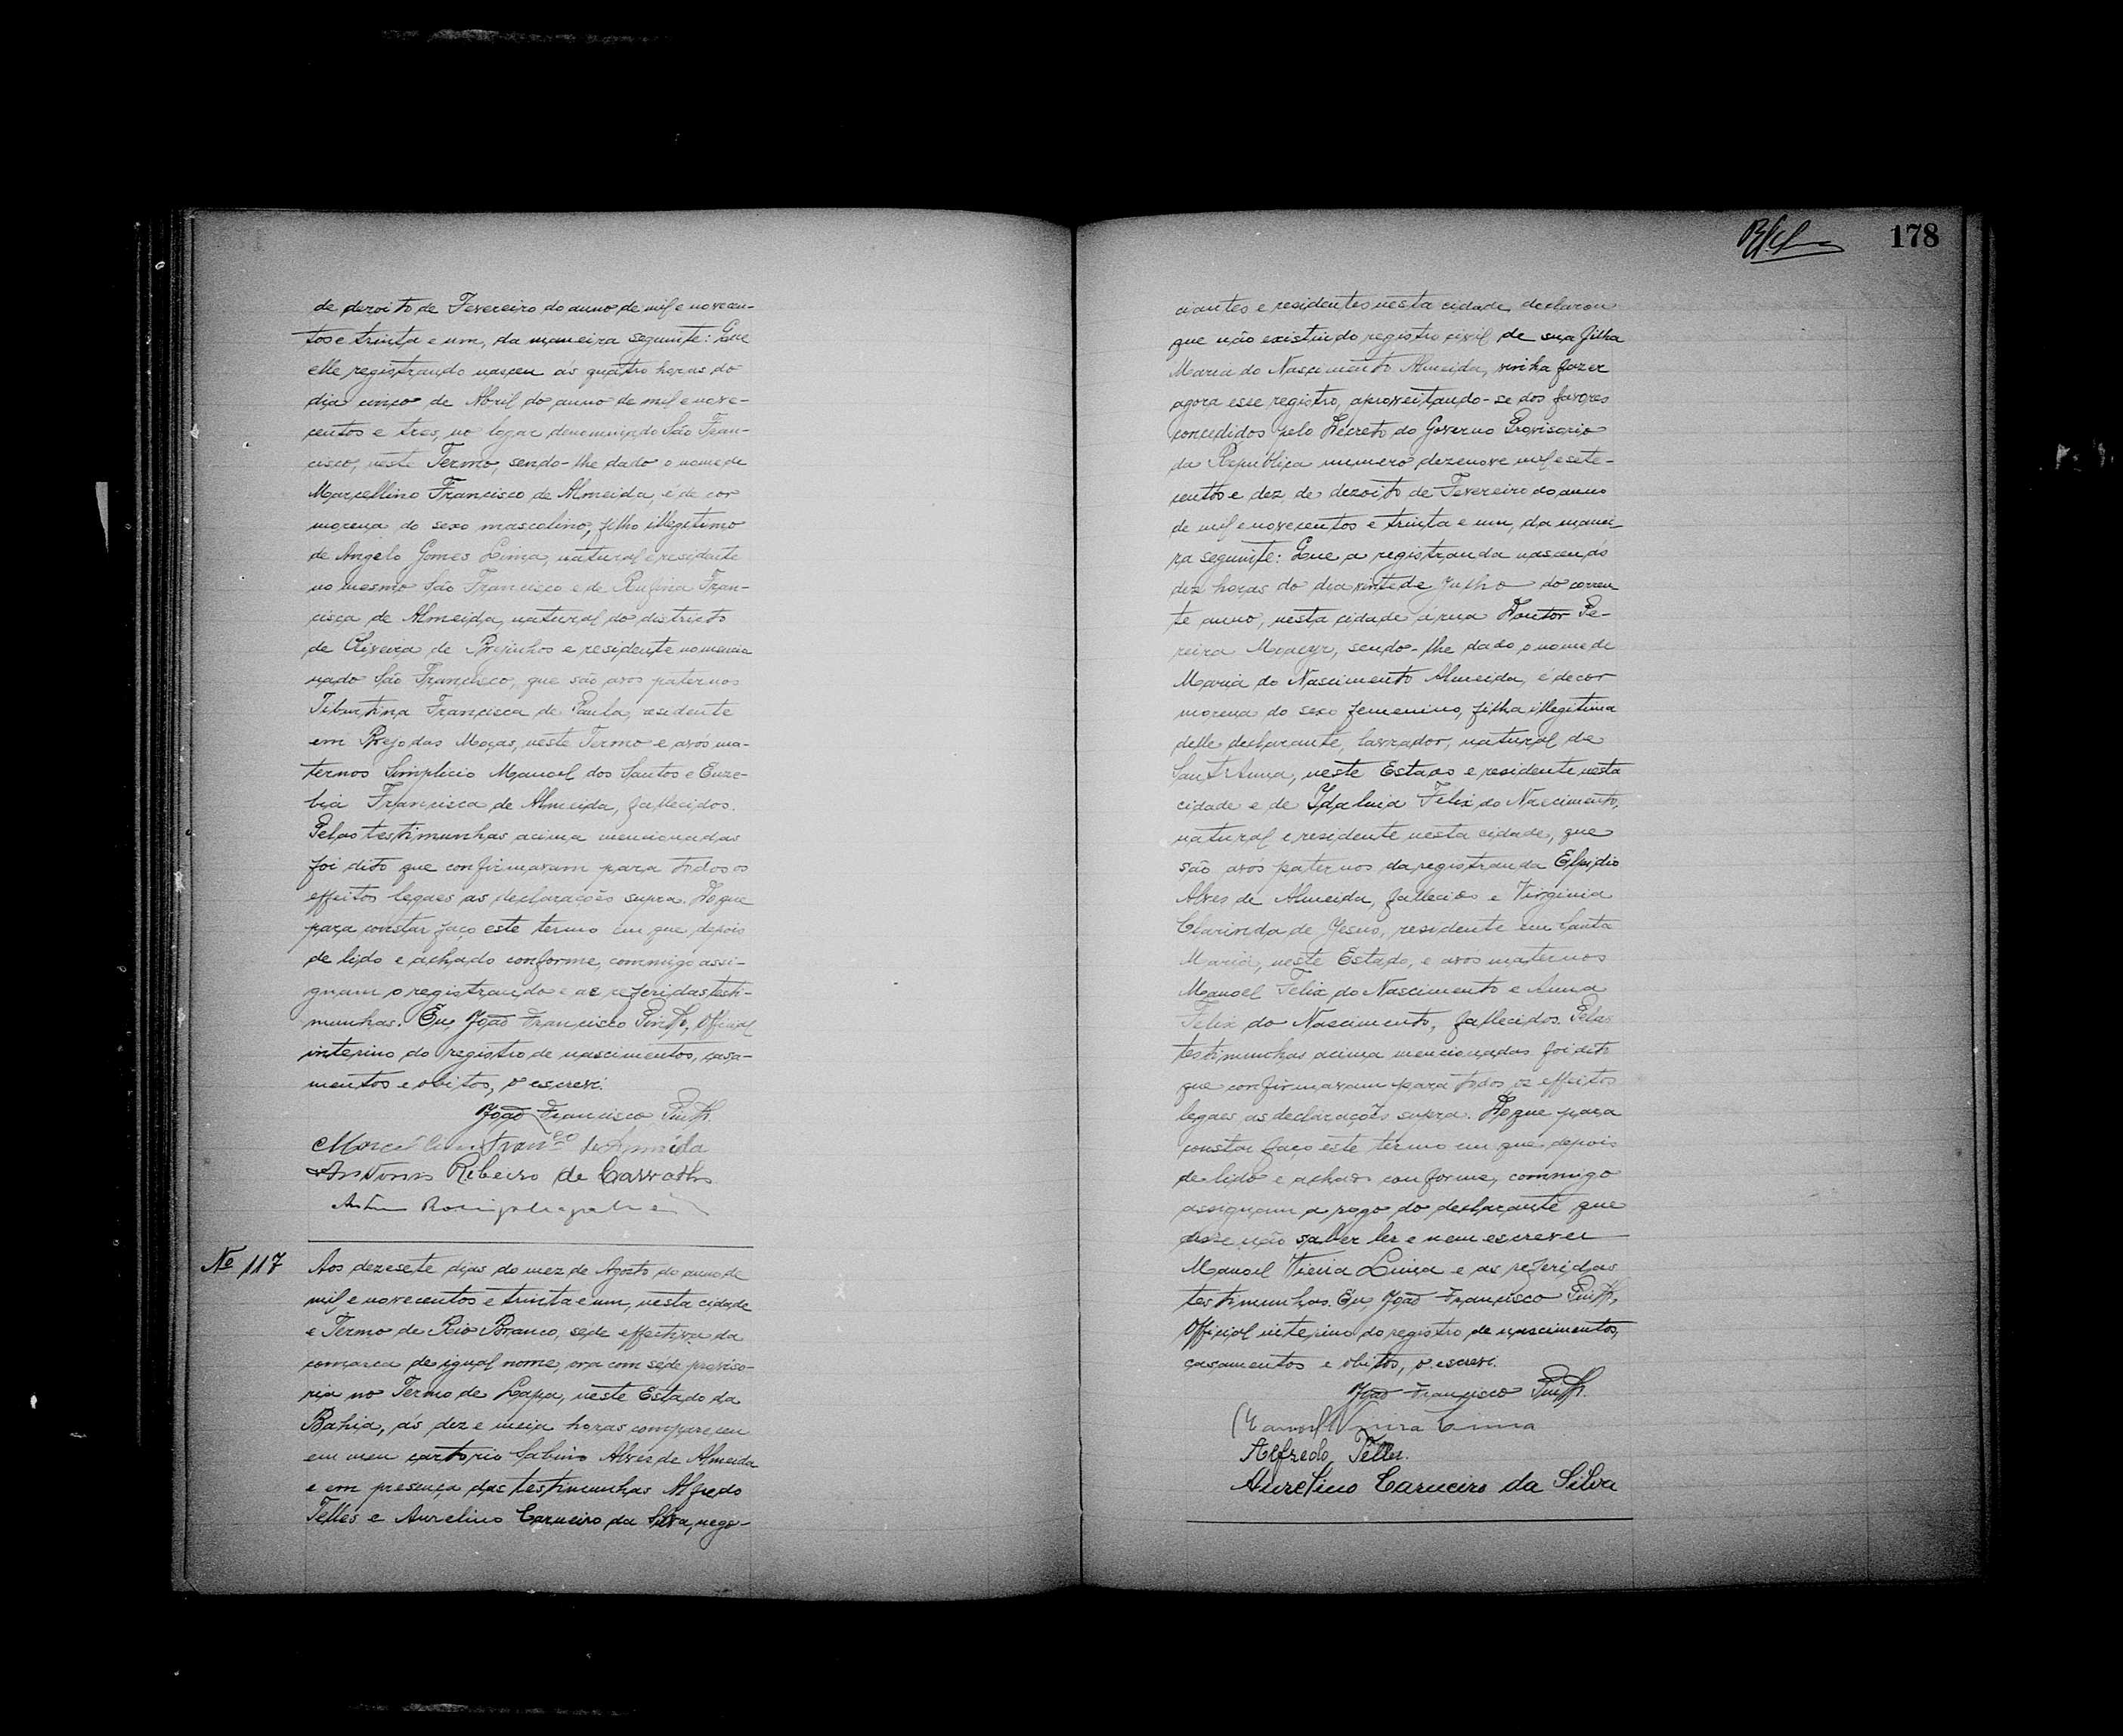 de dezoito de Fevereiro do anno de mil e novecen-
tos e trinta e um, da maneira seguinte: Que
elle registrando nasceu ás quatro horas do
dia cinco de Abril do anno de mil e nove-
centos e tres, no logar denominado São Fran-
cisco, neste Termo, sendo-lhe dado o nome de
Marcellino Francisco de Almeida, é de cor
morena do sexo mascolino, filho illegitimo
de Angelo Gomes Lima, natural e residente
no mesmo São Francisco e de Rufina Fran-
cisca de Almeida, natural do districto
de Oliveira de Brejinhos e residente no mencio
nado São Francisco, que são avos paternos
Tiburtina Francisca de Paula, residente
em Brejo das Moças, neste Termo e avós ma-
ternos Simplicio Manoel dos Santos e Euze-
bia Francisca de Almeida, fallecidos.
Pelas testimunhas acima mencionadas
foi dito que confirmavam para todos os
effeitos legaes as declarações supra. Do que
para constar faço este termo em que depois
de lido e achado conforme, commigo assi-
gnam o registrando e as referidas testi-
munhas. Eu, João Francisco Pinto, Official
interino do registro de nascimentos, casa-
mentos e obitos, o escrevi.
João Francisco Pinto.
Marcellino Franco de Almeida
Antonio Ribeiro de Carvalho
Nº 117
Aos dezesete dias do mez de Agosto do anno de
mil e novecentos e trinta e um, nesta cidade
e Termo de Rio Branco, séde effectiva da
comarca de igual nome, ora com séde proviso-
ria no Termo de Lapa, neste Estado da
Bahia, ás dez e meia horas compareceu
em meu cartorio Sabino Alves de Almeida
e em presença das testimunhas Alfredo
Telles e Aurelino Carneiro da Silva, nego-
178
ciantes e residentes nesta cidade, declarou
que não existindo registro civil de sua filha
Maria do Nascimento Almeida, vinha fazer
agora esse registro, aproveitando-se dos favores
concedidos pelo Decreto do Governo Provisorio
da Republica numero dezenove mil e sete-
centos e dez de dezoito de Fevereiro do anno
de mil e novecentos e trinta e um, da manei-
ra seguinte: Que a registranda nasceu ás
dez horas do dia vinte de Julho do corren
te anno, nesta cidade á rua Doutor Pe-
reira Moacyr, sendo-lhe dado o nome de
Maria do Nascimento Almeida, é de cor
morena do sexo femenino, filha illegitima
delle declarante, lavrador, natural de
Sant'Anna, neste Estado e residente nesta
cidade e de Idalina Felix do Nascimento,
natural e residente nesta cidade, que
são avós paternos da registranda Elpidio
Alves de Almeida, fallecido e Virginia
Clarinda de Jesus, residente em Santa
Maria, neste Estado, e avos maternos
Manoel Felix do Nascimento e Anna
Felix do Nascimento, fallecidos. Pelas
testimunhas acima mencionadas foi dito
que confirmavam para todos os effeitos
legaes as declarações supra. Do que para
constar faço este termo em que depois
de lido e achado conforme, commigo
assignam a rogo do declarante que
disse não saber ler e nem escrever
Manoel Vieira Lima e as referidas
testimunhas. Eu, João Francisco Pinto,
Official interino do registro de nascimentos,
casamentos e obitos, o escrevi.
João Francisco Pinto.
Manoel Vieira Lima
Alfredo Telles.
Aurelino Carneiro da Silva